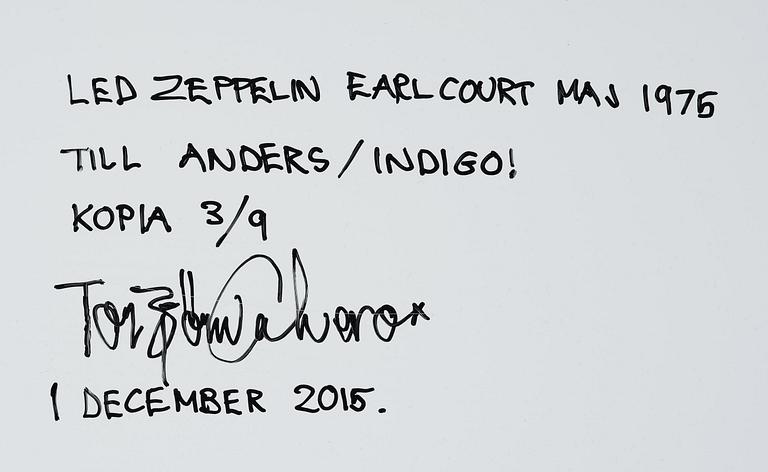 LED ZEPPELIN EARLCOURT MAJ 1975
TILL ANDERS/INDIGO!
KOPIA 3/9
Torbjörn Calvero
1 DECEMBER 2015.